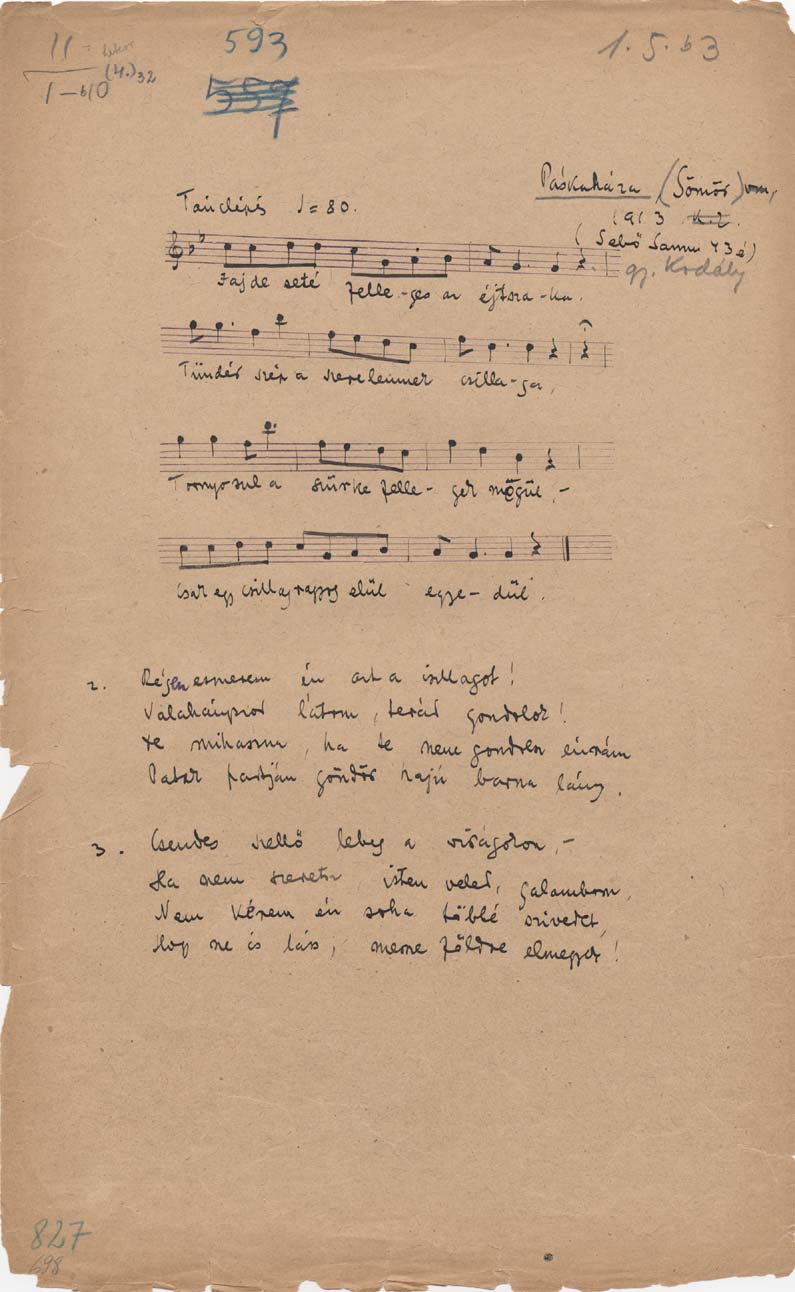 593
1.5.b3
(4.)32
559
Páskaháza (Gömör) vm,
Tánclépés ♩=80.
1913 K.Z.
(Sebő Samu 43é)
gy. Kodály
Jaj de seté felle-ges az éjtsza-ka.
Tündér szép a szerelemnek csilla-ga,
Tornyosul a szürke felle-gek mögül,-
Csak egy csillag ragyog elül egye-dül.
2. Régen esmerem én azt a csillagot!
Valahányszor látom, terád gondolok!
De mihaszna, ha te nem gondolsz énrám
Patak partján göndör hajú barna lány.
3. Csendes szellő lebeg a virágokon,-
Ha nem szeretsz, isten veled, galambom,
Nem kérem én soha többé szivedet,
Hogy ne is láss, messze földre elmegyek!
827
698